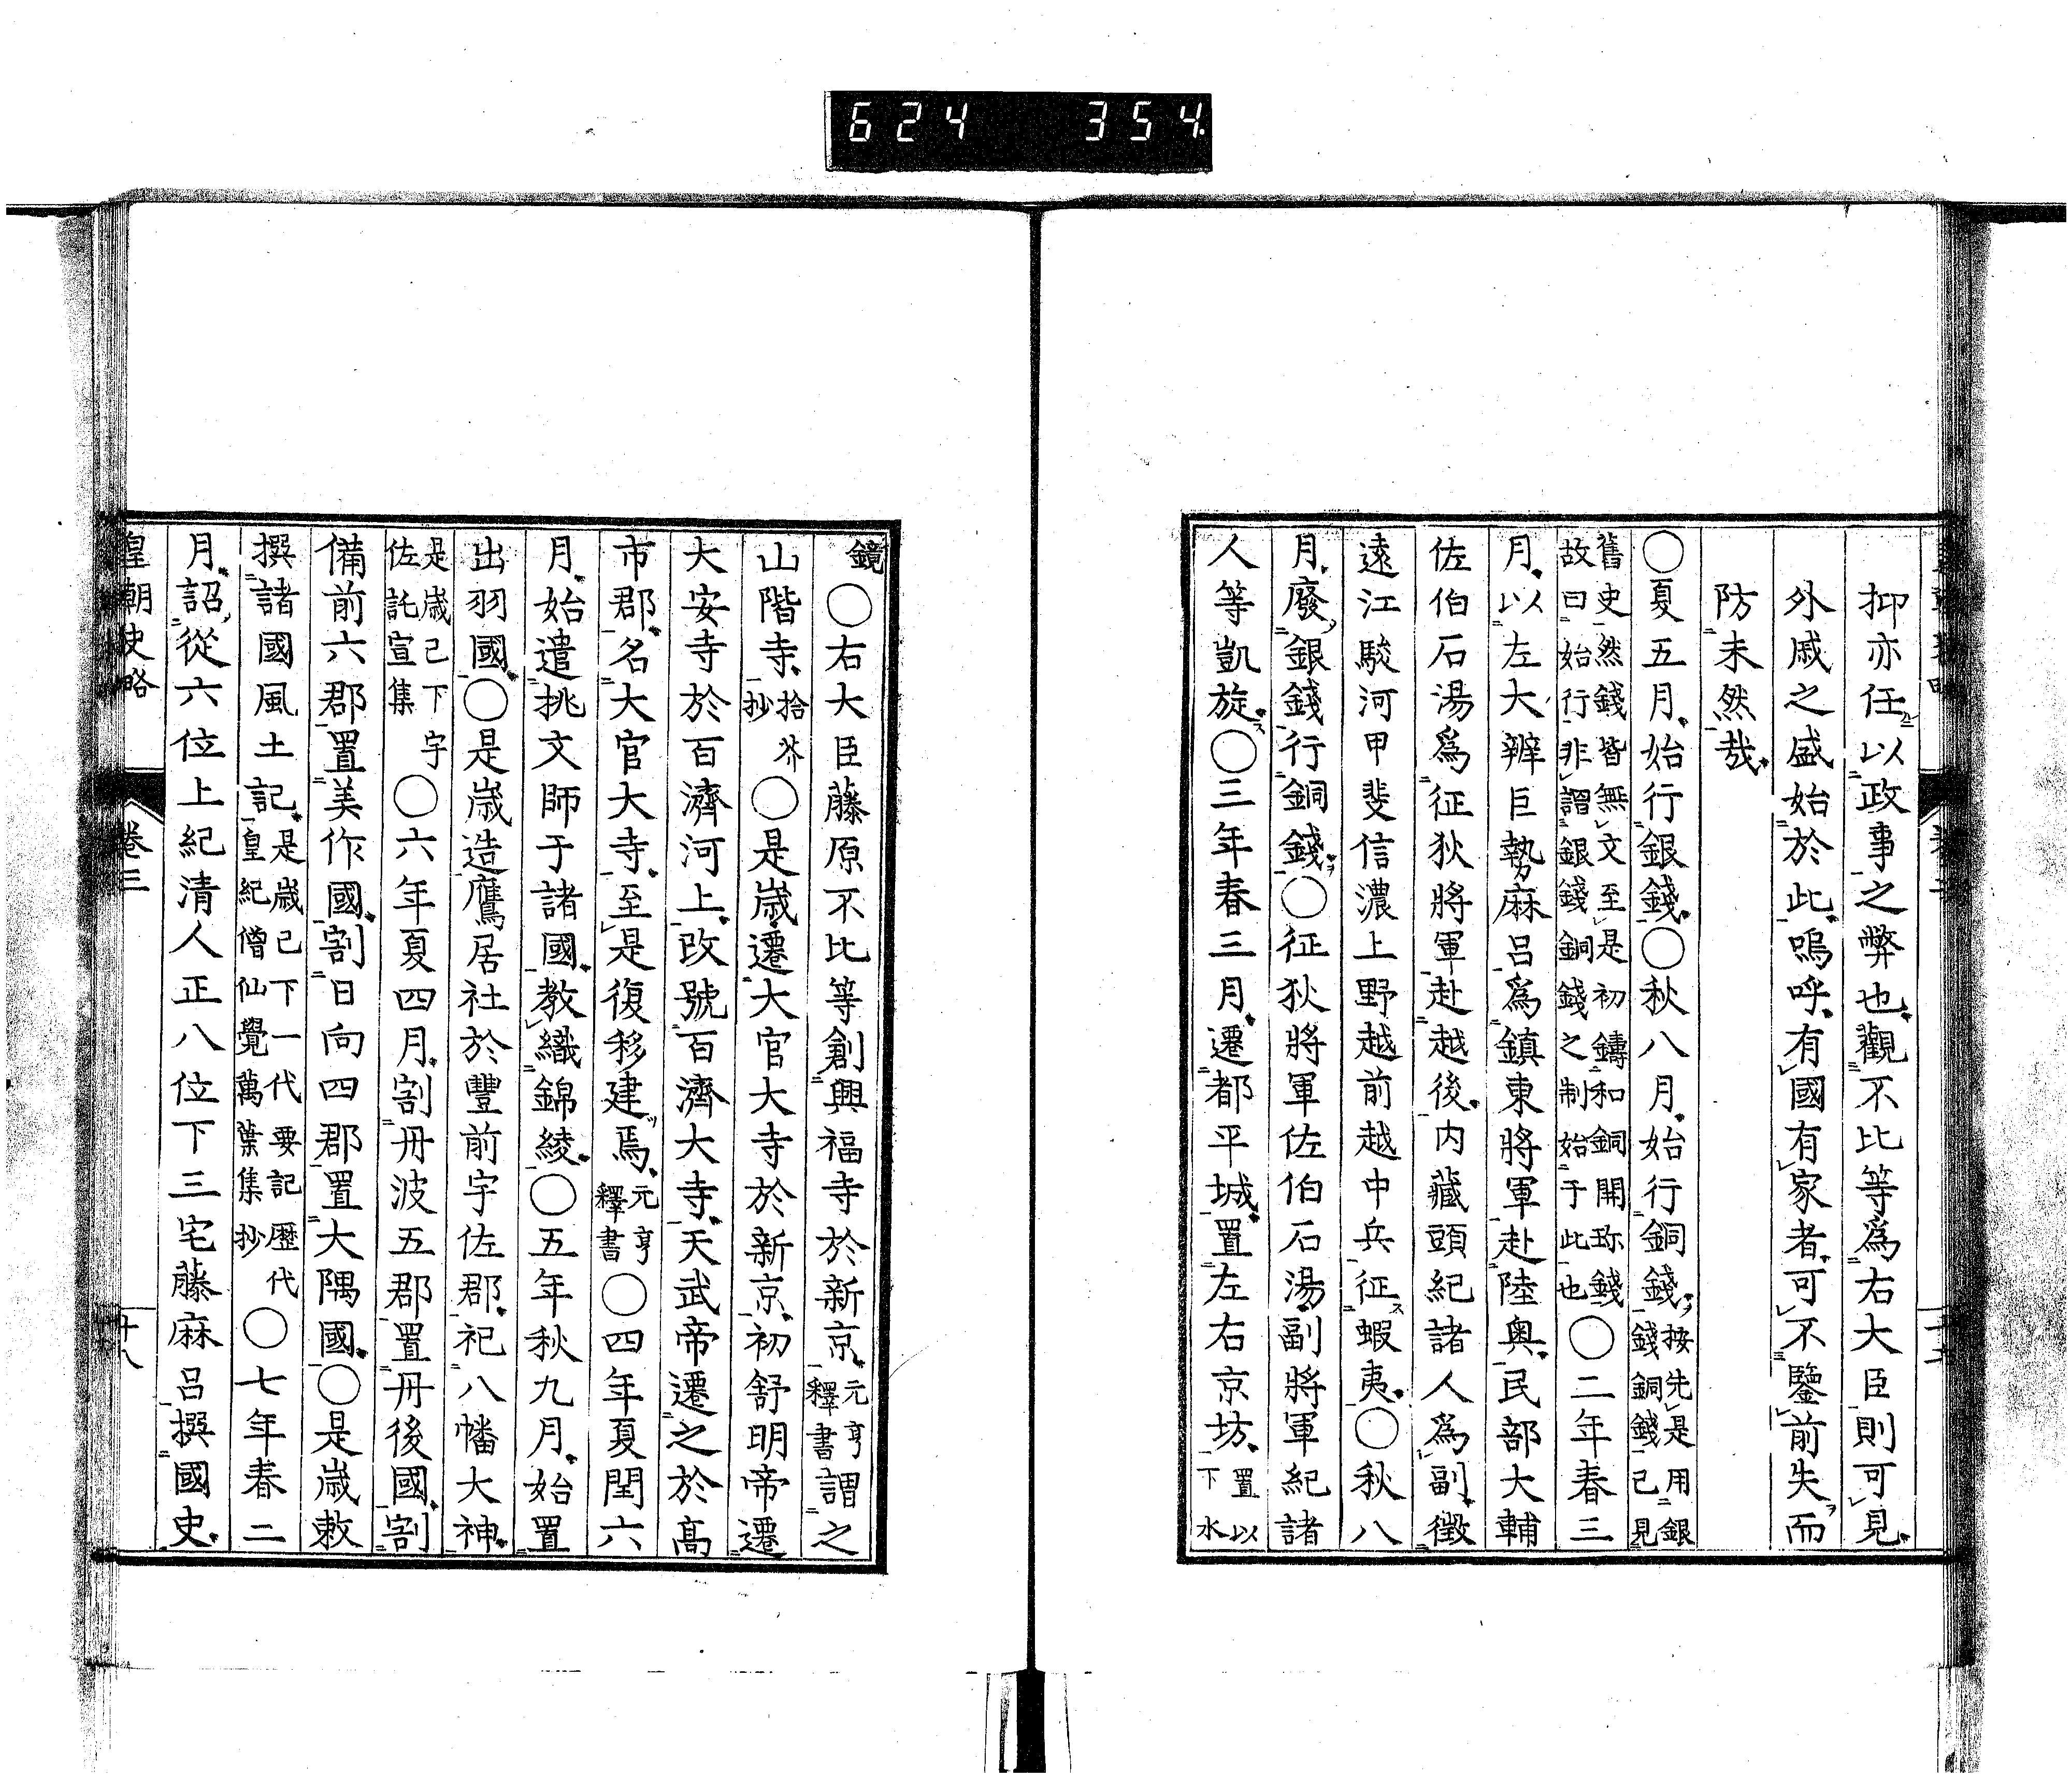 624 354
抑亦任以政事之弊也觀不比等爲右大臣則可見
外戚之盛始於此嗚呼有國有家者可不鑒前失而
防未然哉
○夏五月始行銀錢○秋八月始行銅錢按先是用銀錢銅錢已見
舊史然錢皆無文至是初鑄和銅開珎錢故曰始行非謂銀錢銅錢之制始于此也○二年春三
月以左大辨巨勢麻呂爲鎮東將軍赴陸奥民部大輔
佐伯石湯爲征狄將軍赴越後内藏頭紀諸人爲副徴
遠江駿河甲斐信濃上野越前越中兵征蝦夷○秋八
月廢銀錢行銅錢○征狄將軍佐伯石湯副將軍紀諸
人等凱旋○三年春三月遷都平城置左右京坊置以下水
鏡○右大臣藤原不比等創興福寺於新京元亨釋書謂之
山階寺拾芥抄○是歳遷大官大寺於新京初舒明帝遷
大安寺於百濟河上改號百濟大寺天武帝遷之於高
市郡名大官大寺至是復移建焉元亨釋書○四年夏閏六
月始遣挑文師于諸國教織錦綾○五年秋九月始置
出羽國○是歳造鷹居社於豐前宇佐郡祀八幡大神
是歳已下宇佐託宣集○六年夏四月割丹波五郡置丹後國割
備前六郡置美作國割日向四郡置大隅國○是歳敕
撰諸國風土記是歳已下一代要記歴代皇紀僧仙覺萬葉集抄○七年春二
月詔從六位上紀清人正八位下三宅藤麻呂撰國史
皇朝史略 卷三 十八